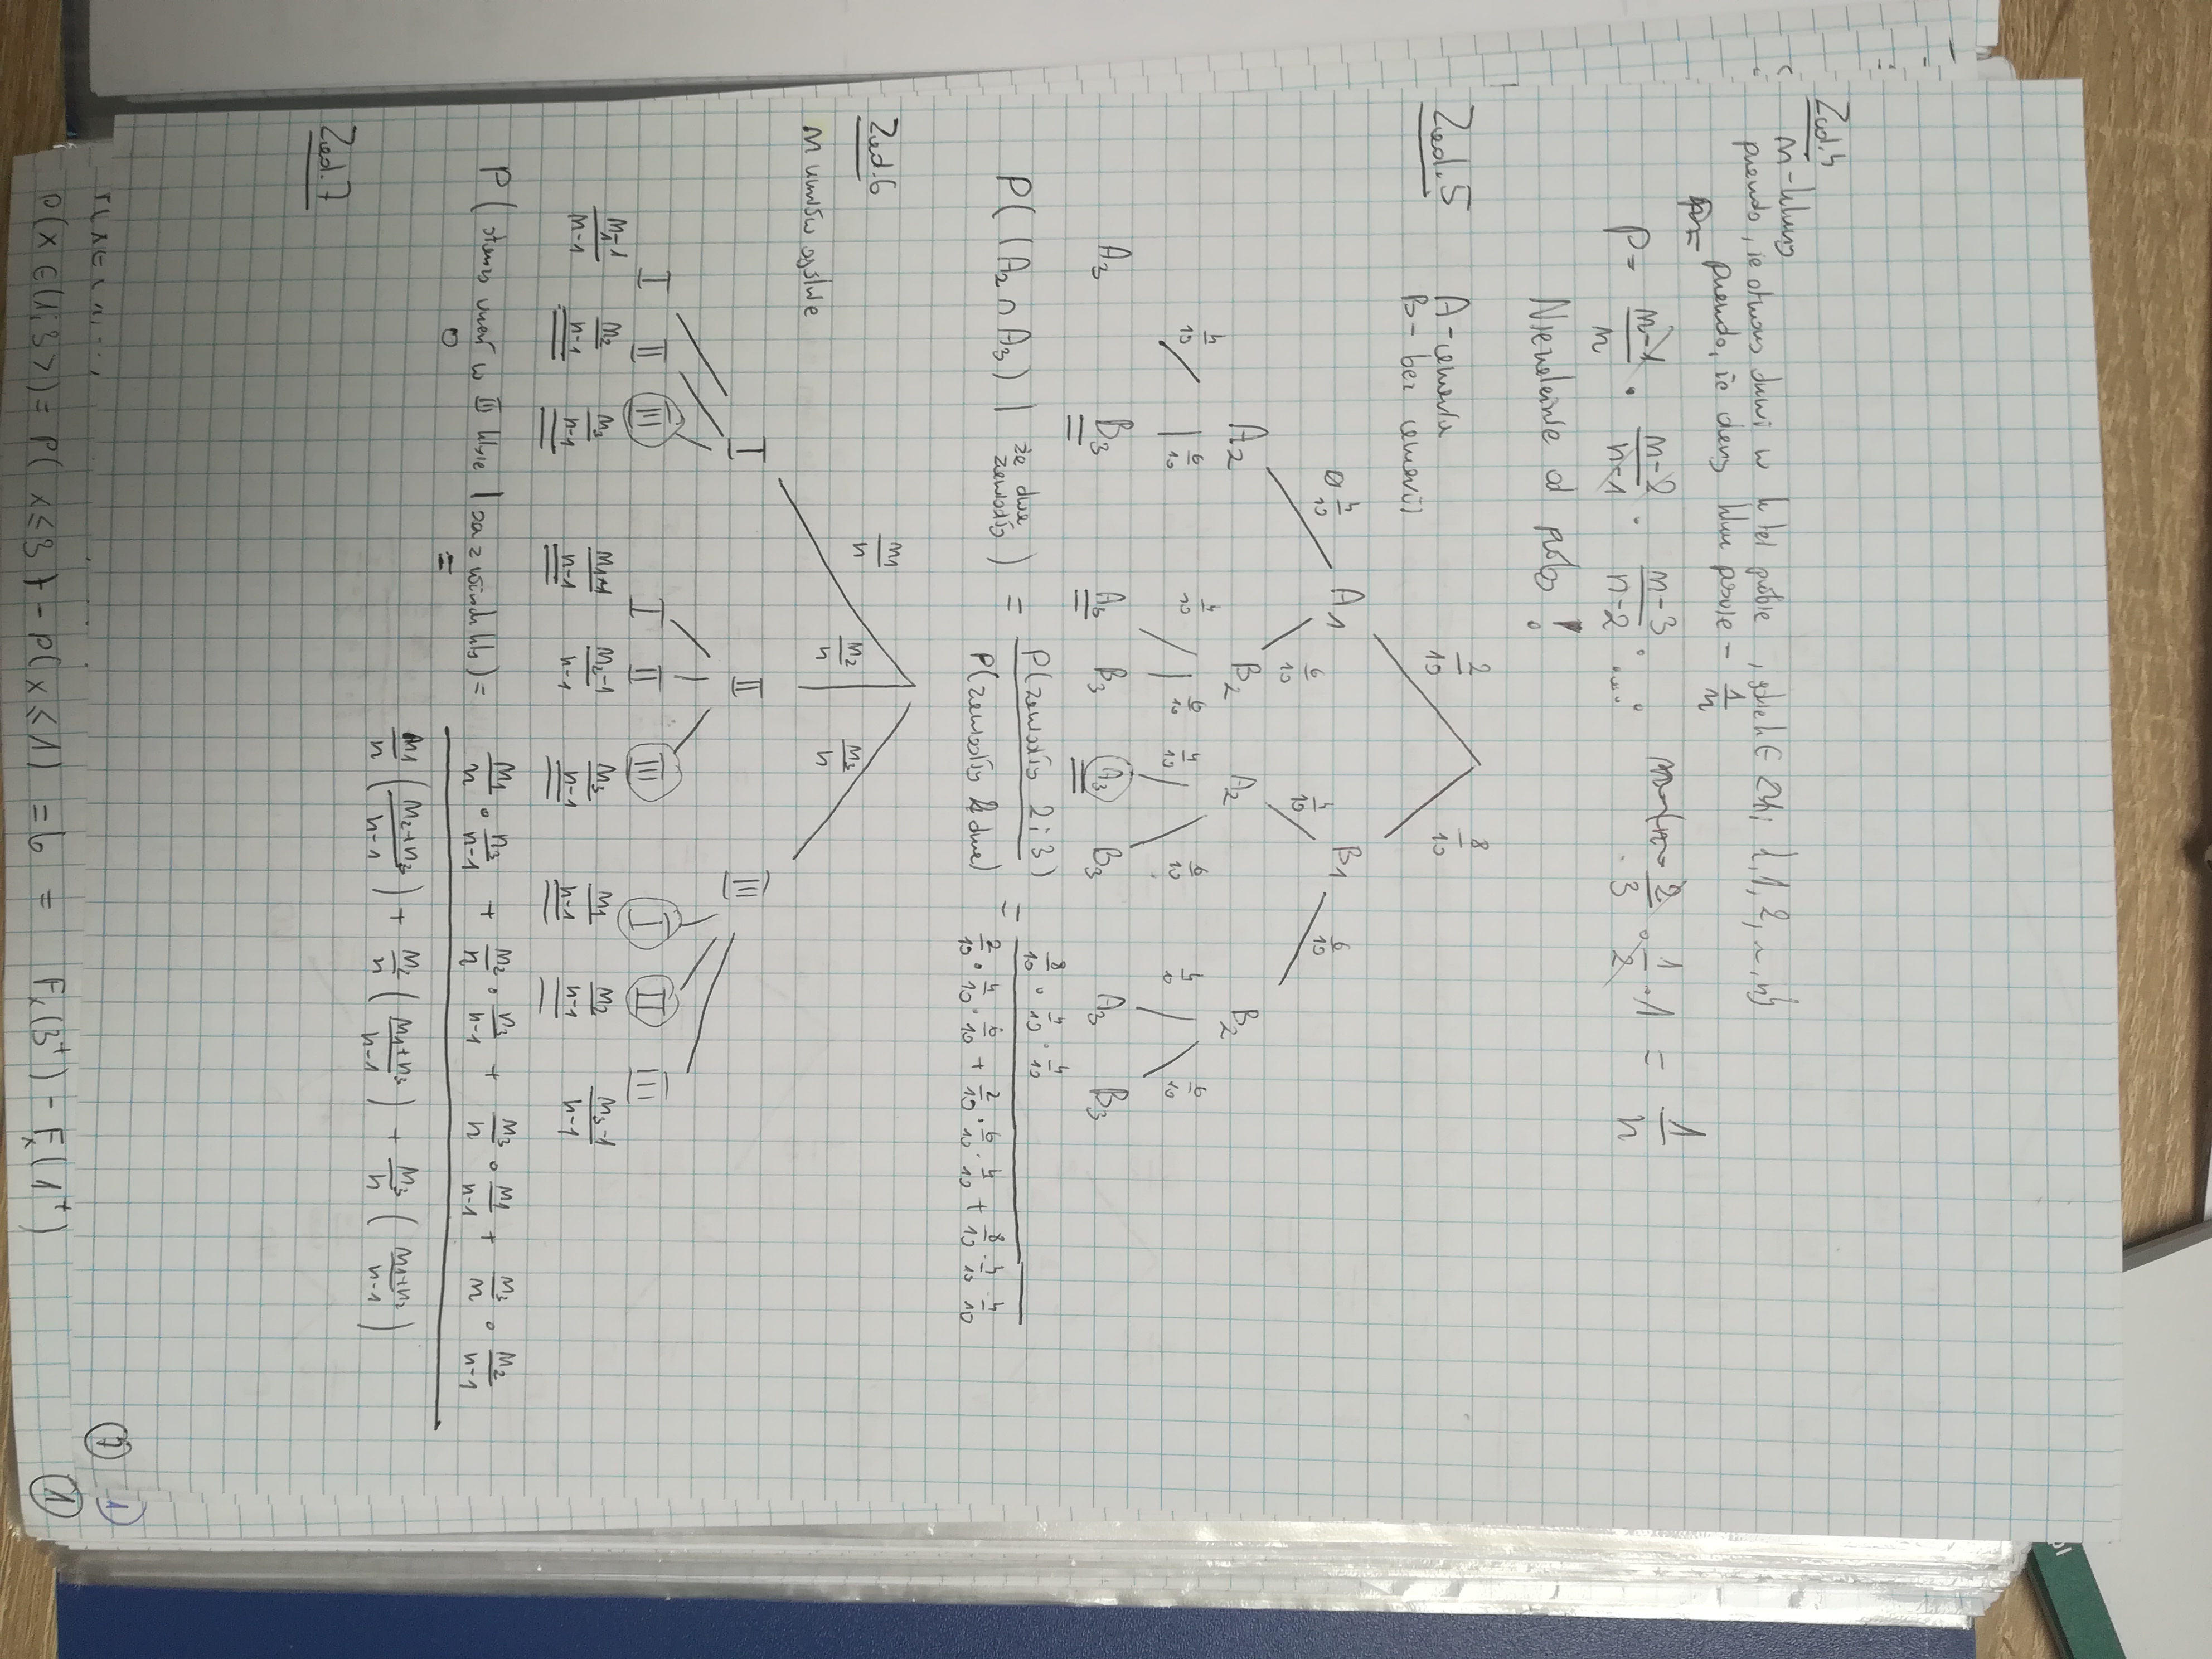 Zad.4
n - kluczy
pwendo, że otworzy drzwi w k-tej próbie, gdzie k ∈ {1, 2, ..., n}
pwendo, że dany klucz pasuje - 1/n
P = (n-1)/n · (n-2)/(n-1) · (n-3)/(n-2) · ... · 2/3 · 1/2 · 1 = 1/n
Niezależnie od próby !
Zad.5
A - awaria
B - bez awarii
2/10 8/10
A1 B1
4/10 6/10 4/10 6/10
A2 B2 A2 B2
4/10 6/10 4/10 6/10 4/10 6/10 4/10 6/10
A3 B3 A3 B3 A3 B3 A3 B3
P((A2 ∩ A3) | że dwa zawiodły) = P(zawiodły 2 i 3) / P(zawiodły dwa) = (8/10 · 4/10 · 4/10) / (2/10 · 4/10 · 6/10 + 2/10 · 6/10 · 4/10 + 8/10 · 4/10 · 4/10)
Zad.6
n ogólnie
n1/n n2/n n3/n
I II III
I II III I II III I II III
(n1-1)/(n-1) n2/(n-1) n3/(n-1) (n2-1)/(n-1) n3/(n-1) n1/(n-1) n2/(n-1) (n3-1)/(n-1)
P( w III klasie | ) = n1/n · n3/(n-1) + n2/n · n3/(n-1) + n3/n · n1/(n-1) + n3/n · n2/(n-1)
n1/n ((n2+n3)/(n-1)) + n2/n ((n1+n3)/(n-1)) + n3/n ((n1+n2)/(n-1))
Zad.7
P(x ∈ (1; 3>) = P(x ≤ 3) - P(x ≤ 1) = 6 = Fx(3⁺) - Fx(1⁺)
1
1